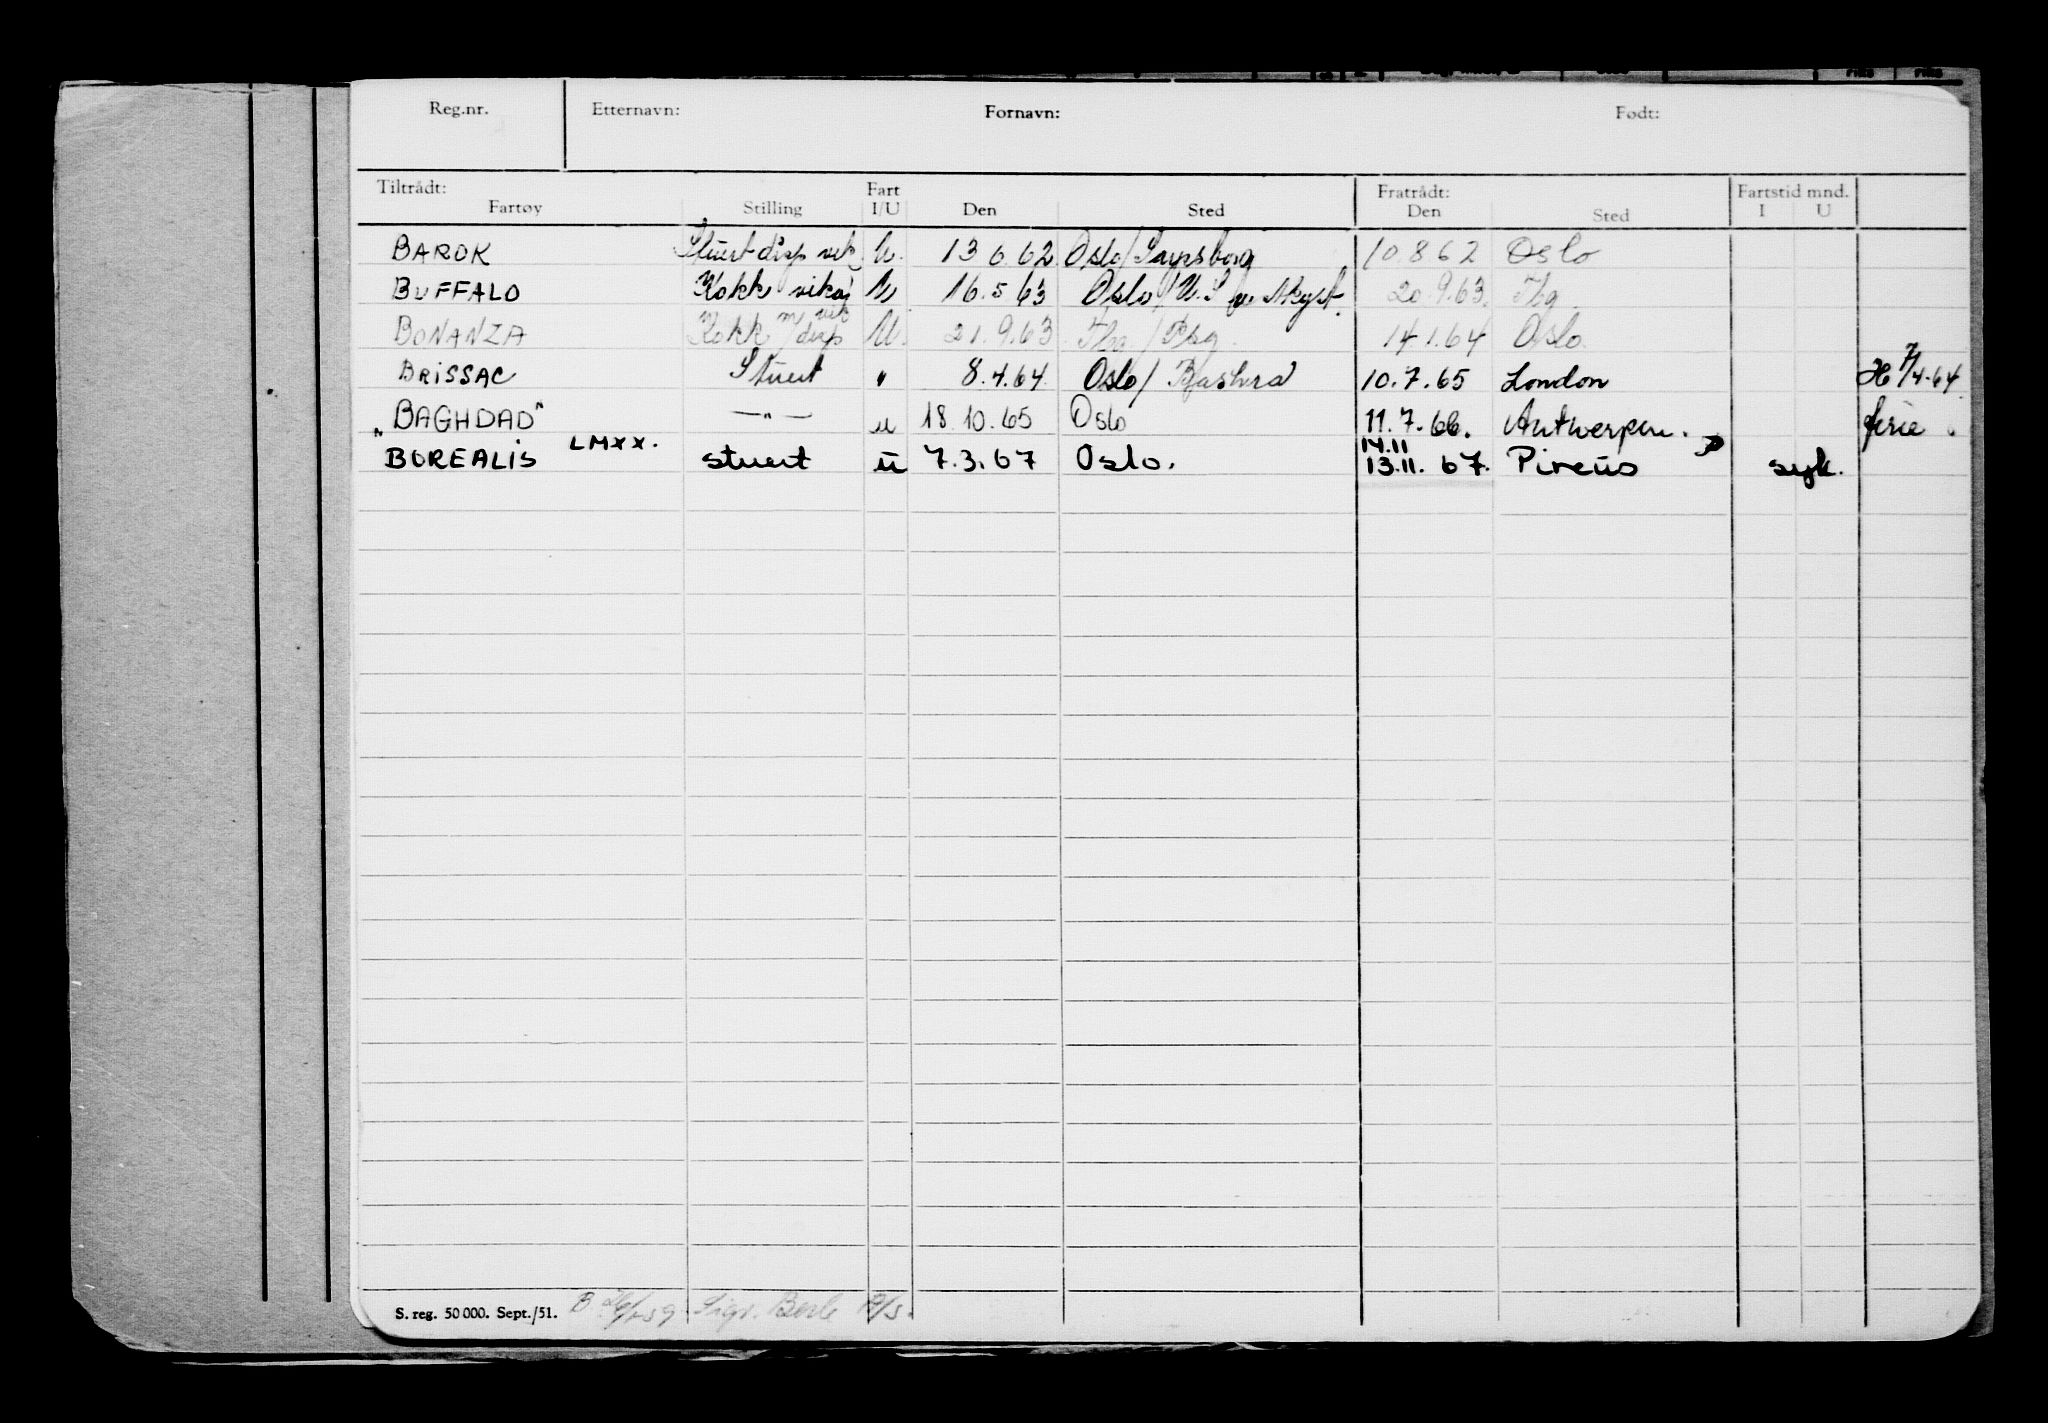 Reg.nr. Etternavn: Fornavn: Født:
Tiltrådt: Fart Fratrådt: Fartstid mnd.
Fartøy Stilling I/U Den Sted Den Sted I U
BAROK Stuert disp vik U. 13 6 62 Oslo/Sarpsborg 10 8 62 Oslo
BUFFALO Kokk vikar U 16.5 63 Oslo/U.S v. 20.9.63.
m vik
BONANZA Kokk / disp U. 21.9.63 14.1.64 Oslo
BRISSAC Stuert " 8.4.64 Oslo/ 10.7.65 London 7/4-64
"BAGHDAD" —"— u 18.10.65 Oslo 11.7.66. Antwerpen. ferie.
LMXX. 14.11
BOREALIS stuert u 7.3.67 Oslo. 13.11.67. Pireus syk.
S. reg. 50 000. Sept./51. B